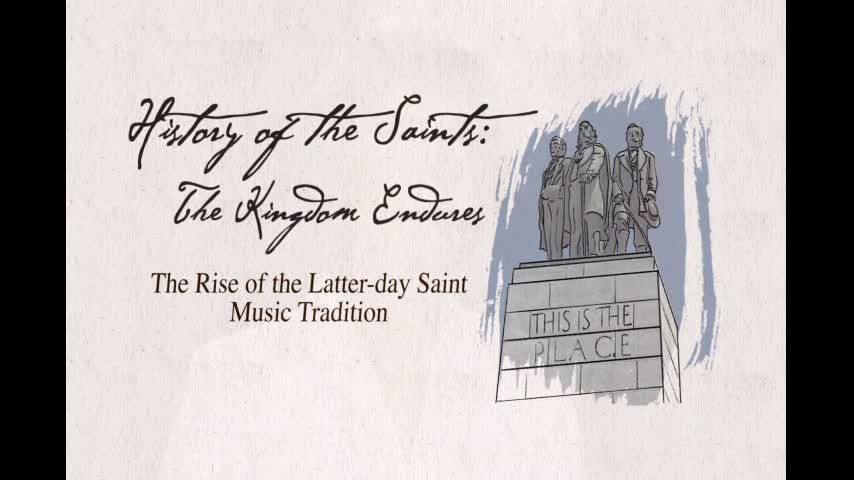 History of the Saints:
The Kingdom Endures
The Rise of the Latter-day Saint
Music Tradition
THIS IS THE
PLACE